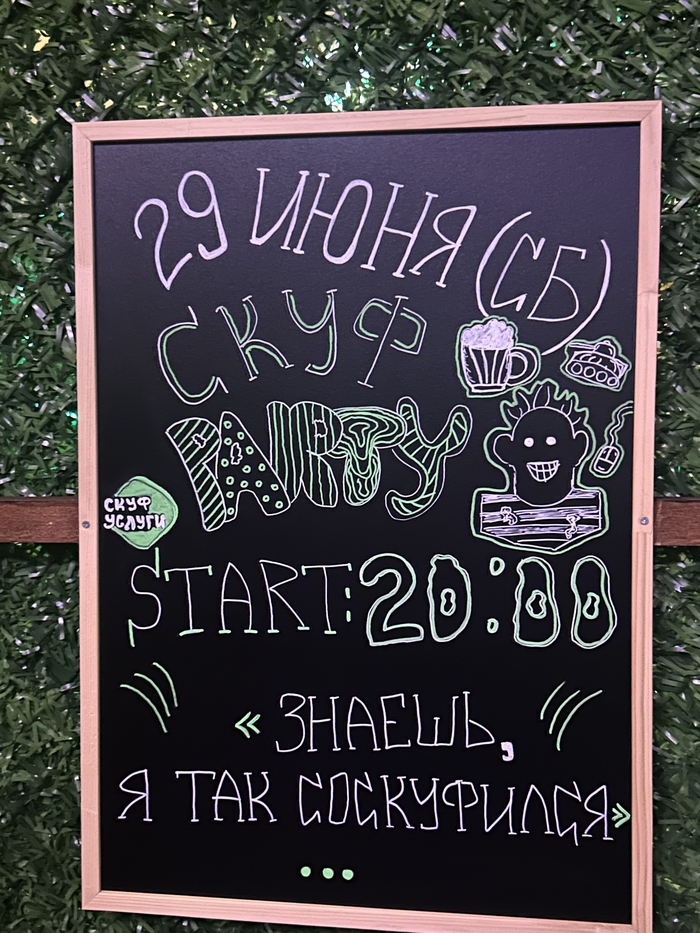 29 ИЮНЯ (СБ)
СКУФ
PARTY
СКУФ
УСЛУГИ
START: 20:00
« ЗНАЕШЬ,
Я ТАК СОСКУФИЛСЯ»
...